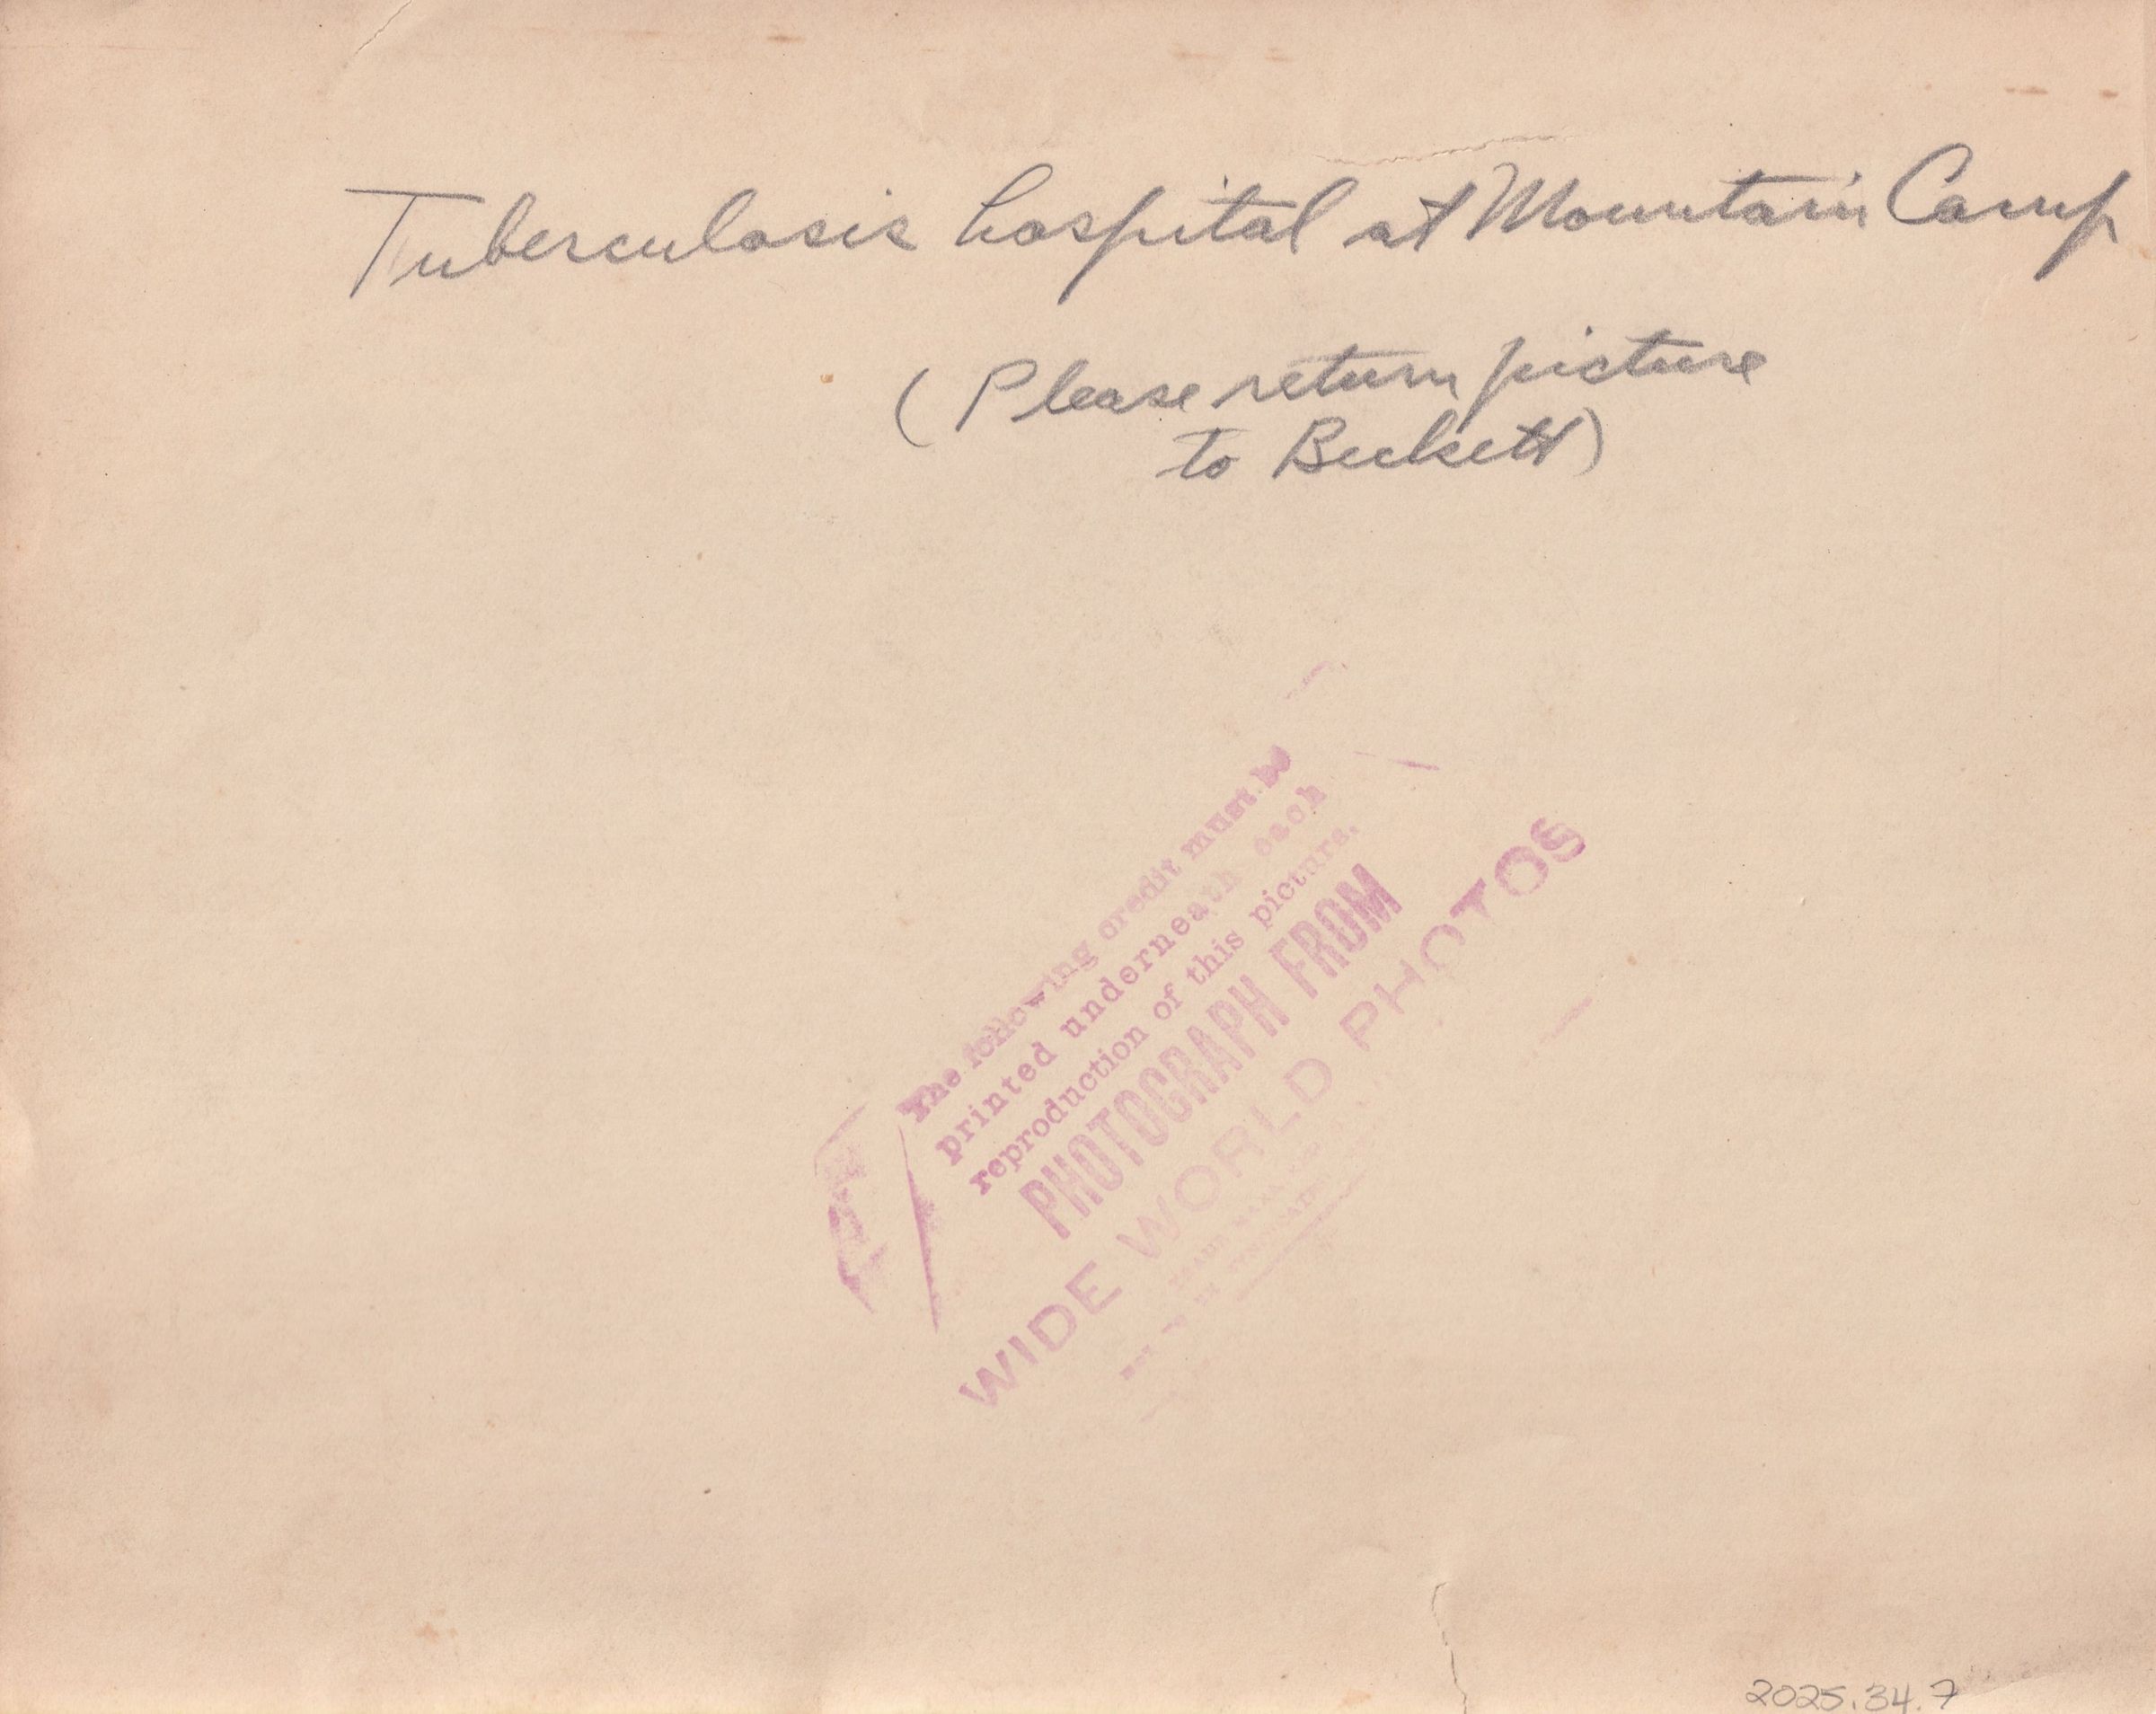 Tuberculosis hospital at Mountain Camp
(Please return picture
to Beckett)
The following credit must be
printed underneath each
reproduction of this picture.
PHOTOGRAPH FROM
WIDE WORLD PHOTOS
2025.34.7